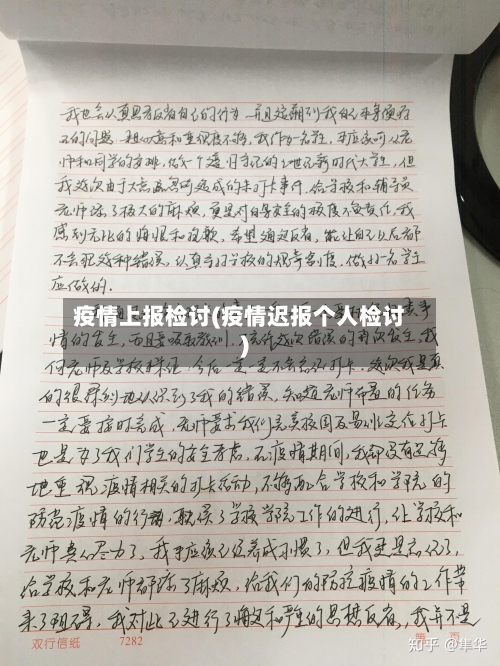 我也会认真思考反省自己的行为，并且这期到我自己本身原有
的问题，粗心意和重视度不够，我作为一名学生，本应该听从老
师和同学的安排，做一个遵守的新时代大学生，但
我这次由于大意疏忽所造成的未打卡事件，给学校和辅导员
老师添了极大的麻烦，更是对自身安全的极度不负责任，我
感到无比的悔恨和抱歉，希望通过反省，能让自己以后都
不会犯这种错误，认真学习学校的规章制度，做好一名学生
应做的。
疫情上报检讨(疫情迟报个人检讨
)
事
情的发生，而且要吸取教训，的再次发生，我
向老师及学校保证，今后一定一定不会忘记打卡，这次我是真
的很深刻地认识到了我的错误，知道老师布置的任务
一定要按时完成，老师要求我们完善校园及易班定位打卡
也是为了我们学生的安全考虑，在疫情期间，我却没有足够
地重视疫情相关的打卡活动，不够配合学校和学院的
防范疫情的行动，耽误了学校学院工作的进行，让学校和
老师费心尽力了，我本应该已经养成习惯了，但我更是忘记了，
给学校和老师都添了麻烦，给我们的防控疫情的工作带
来了阻碍，我对此已进行了确定和严肃的思想反省，我并不是
双行信纸 7282 第 页
知乎 @隼华